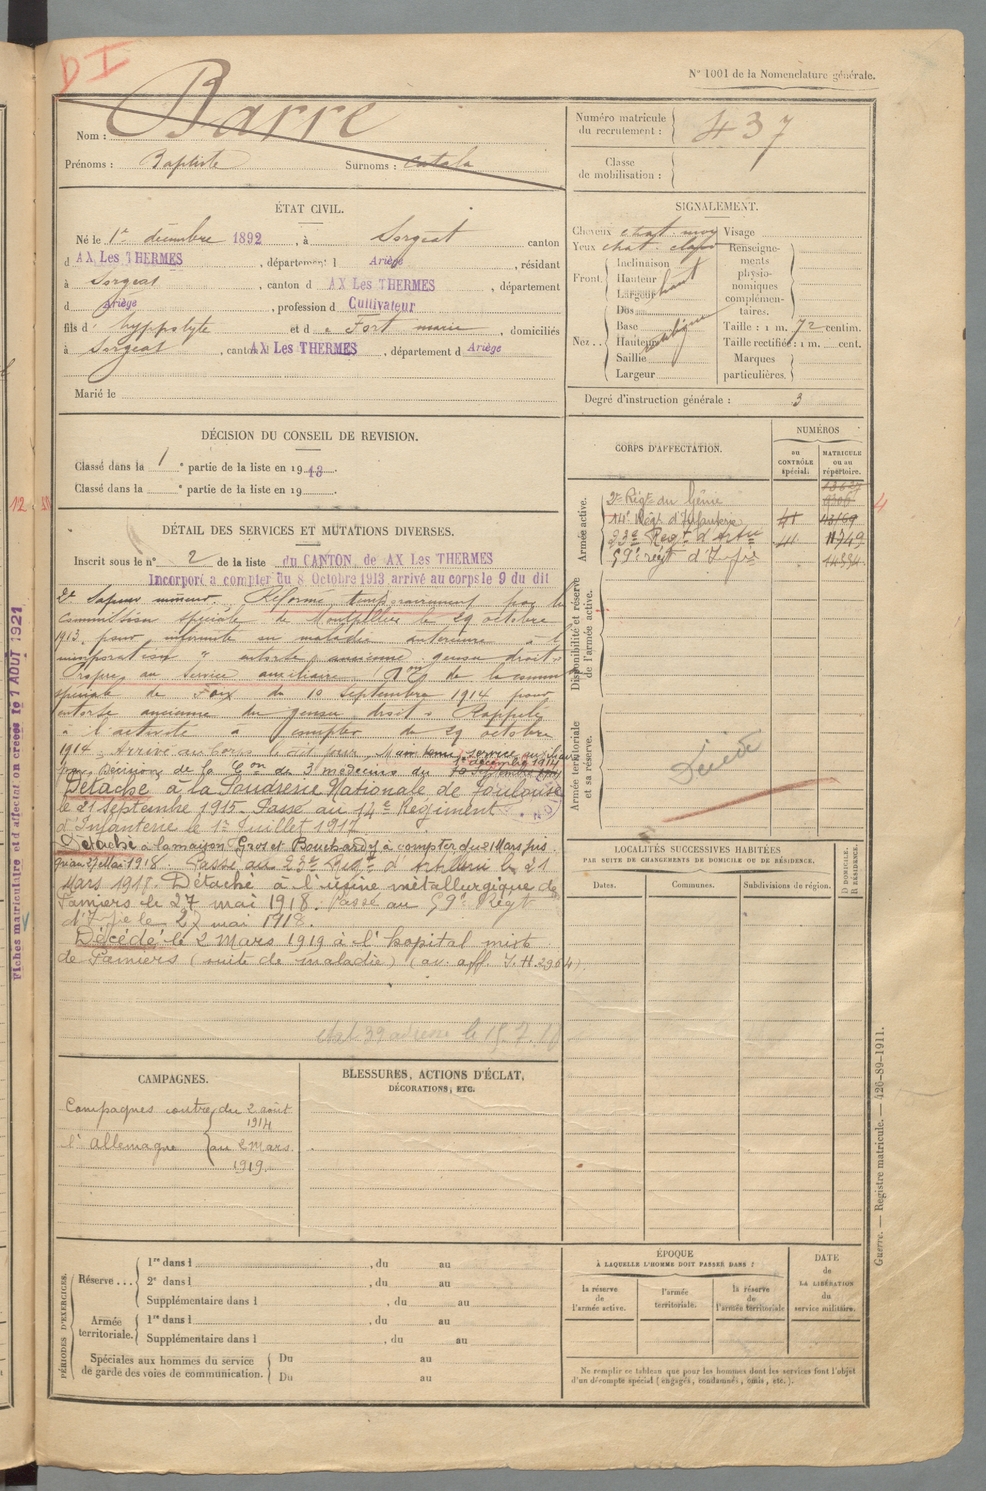 DI
N° 1001 de la Nomenclature générale.
Nom : Barre
Prénoms : Baptiste Surnoms : Catala
Numéro matricule du recrutement : 437
Classe de mobilisation :
ÉTAT CIVIL.
Né le 1er décembre 1892, à Sorgeat canton
d AX Les THERMES, département d Ariège, résidant
à Sorgeat, canton d AX Les THERMES, département
d Ariège, profession d Cultivateur
fils d' hyppolyte et d e Fort marie, domiciliés
à Sorgeat, canton AX Les THERMES, département d Ariège
Marié le
SIGNALEMENT.
Cheveux chat. moy Visage
Yeux chat. clair Renseigne-
ments
physio-
nomiques
complémen-
taires.
Front. Inclinaison
Hauteur haut
Largeur
Nez.. Dos
Base
Hauteur
Saillie
Largeur
Taille : 1 m. 72 centim.
Taille rectifiée : 1 m. cent.
Marques
particulières.
Degré d'instruction générale : 3
DÉCISION DU CONSEIL DE REVISION.
Classé dans la 1 e partie de la liste en 1913.
Classé dans la e partie de la liste en 19 .
CORPS D'AFFECTATION.
NUMÉROS
au CONTRÔLE spécial.
MATRICULE ou au répertoire.
Armée active.
2e Régt du Génie
14e Régt d'Infanterie
23e Régt d'Artie 11749
59e régt d'Infie
Disponibilité et réserve de l'armée active.
Armée territoriale et sa réserve.
Décédé
DÉTAIL DES SERVICES ET MUTATIONS DIVERSES.
Inscrit sous le n° 2 de la liste du CANTON de AX Les THERMES
Incorporé a compter du 8 Octobre 1913, arrivé au corps le 9 du dit
2e Sapeur mineur. Réformé temporairement par la
commission spéciale de Montpellier le 29 octobre
1913 pour infirmité ou maladie antérieure à l'
incorporation " entorse ancienne genou droit"
Propre au service auxiliaire Con de la comm
spéciale de Foix du 10 Septembre 1914 pour
entorse ancienne du genou droit. Rappelé
à l'activité à compter du 29 octobre
1914. Arrivé au Corps le dit jour. Maintenu service auxiliaire
par Décision de la Con de 3 médecins du 1er décembre 1914
Détaché à la Poudrerie Nationale de Toulouse
le 21 septembre 1915. Passé au 14e Régiment
d'Infanterie le 1er Juillet 1917
Détaché à la maison Grot et Bouchardy à compter du 21 Mars jus
qu'au 27 Mai 1918. Passé au 23e Régt d'Artillerie le 21
Mars 1918. Détaché à l'usine métallurgique de
Pamiers le 27 mai 1918. Passé au 59e Régt
d'Infie le 27 mai 1918.
Décédé le 2 Mars 1919 à l'hopital mixte
de Pamiers (suite de maladie) (av. off. I.H. 2964)
LOCALITÉS SUCCESSIVES HABITÉES
PAR SUITE DE CHANGEMENTS DE DOMICILE OU DE RÉSIDENCE.
Dates.
Communes.
Subdivisions de région.
D DOMICILE.
R RÉSIDENCE.
CAMPAGNES.
Campagnes contre du 2 août
1914
l'Allemagne au 2 Mars
1919.
BLESSURES, ACTIONS D'ÉCLAT,
DÉCORATIONS, ETC.
PÉRIODES D'EXERCICES.
Réserve... 1re dans l , du au
2e dans l , du au
Supplémentaire dans l , du au
Armée territoriale. 1re dans l , du au
Supplémentaire dans l , du au
Spéciales aux hommes du service de garde des voies de communication. Du au
Du au
ÉPOQUE
À LAQUELLE L'HOMME DOIT PASSER DANS :
la réserve de l'armée active.
l'armée territoriale.
la réserve de l'armée territoriale
DATE de LA LIBÉRATION du service militaire.
Ne remplir ce tableau que pour les hommes dont les services font l'objet
d'un décompte spécial (engagés, condamnés, omis, etc.).
Guerre. — Registre matricule. — 426-89-1911.
Fiches matriculaire et d'affectation créées le 1 AOUT 1921
12
4